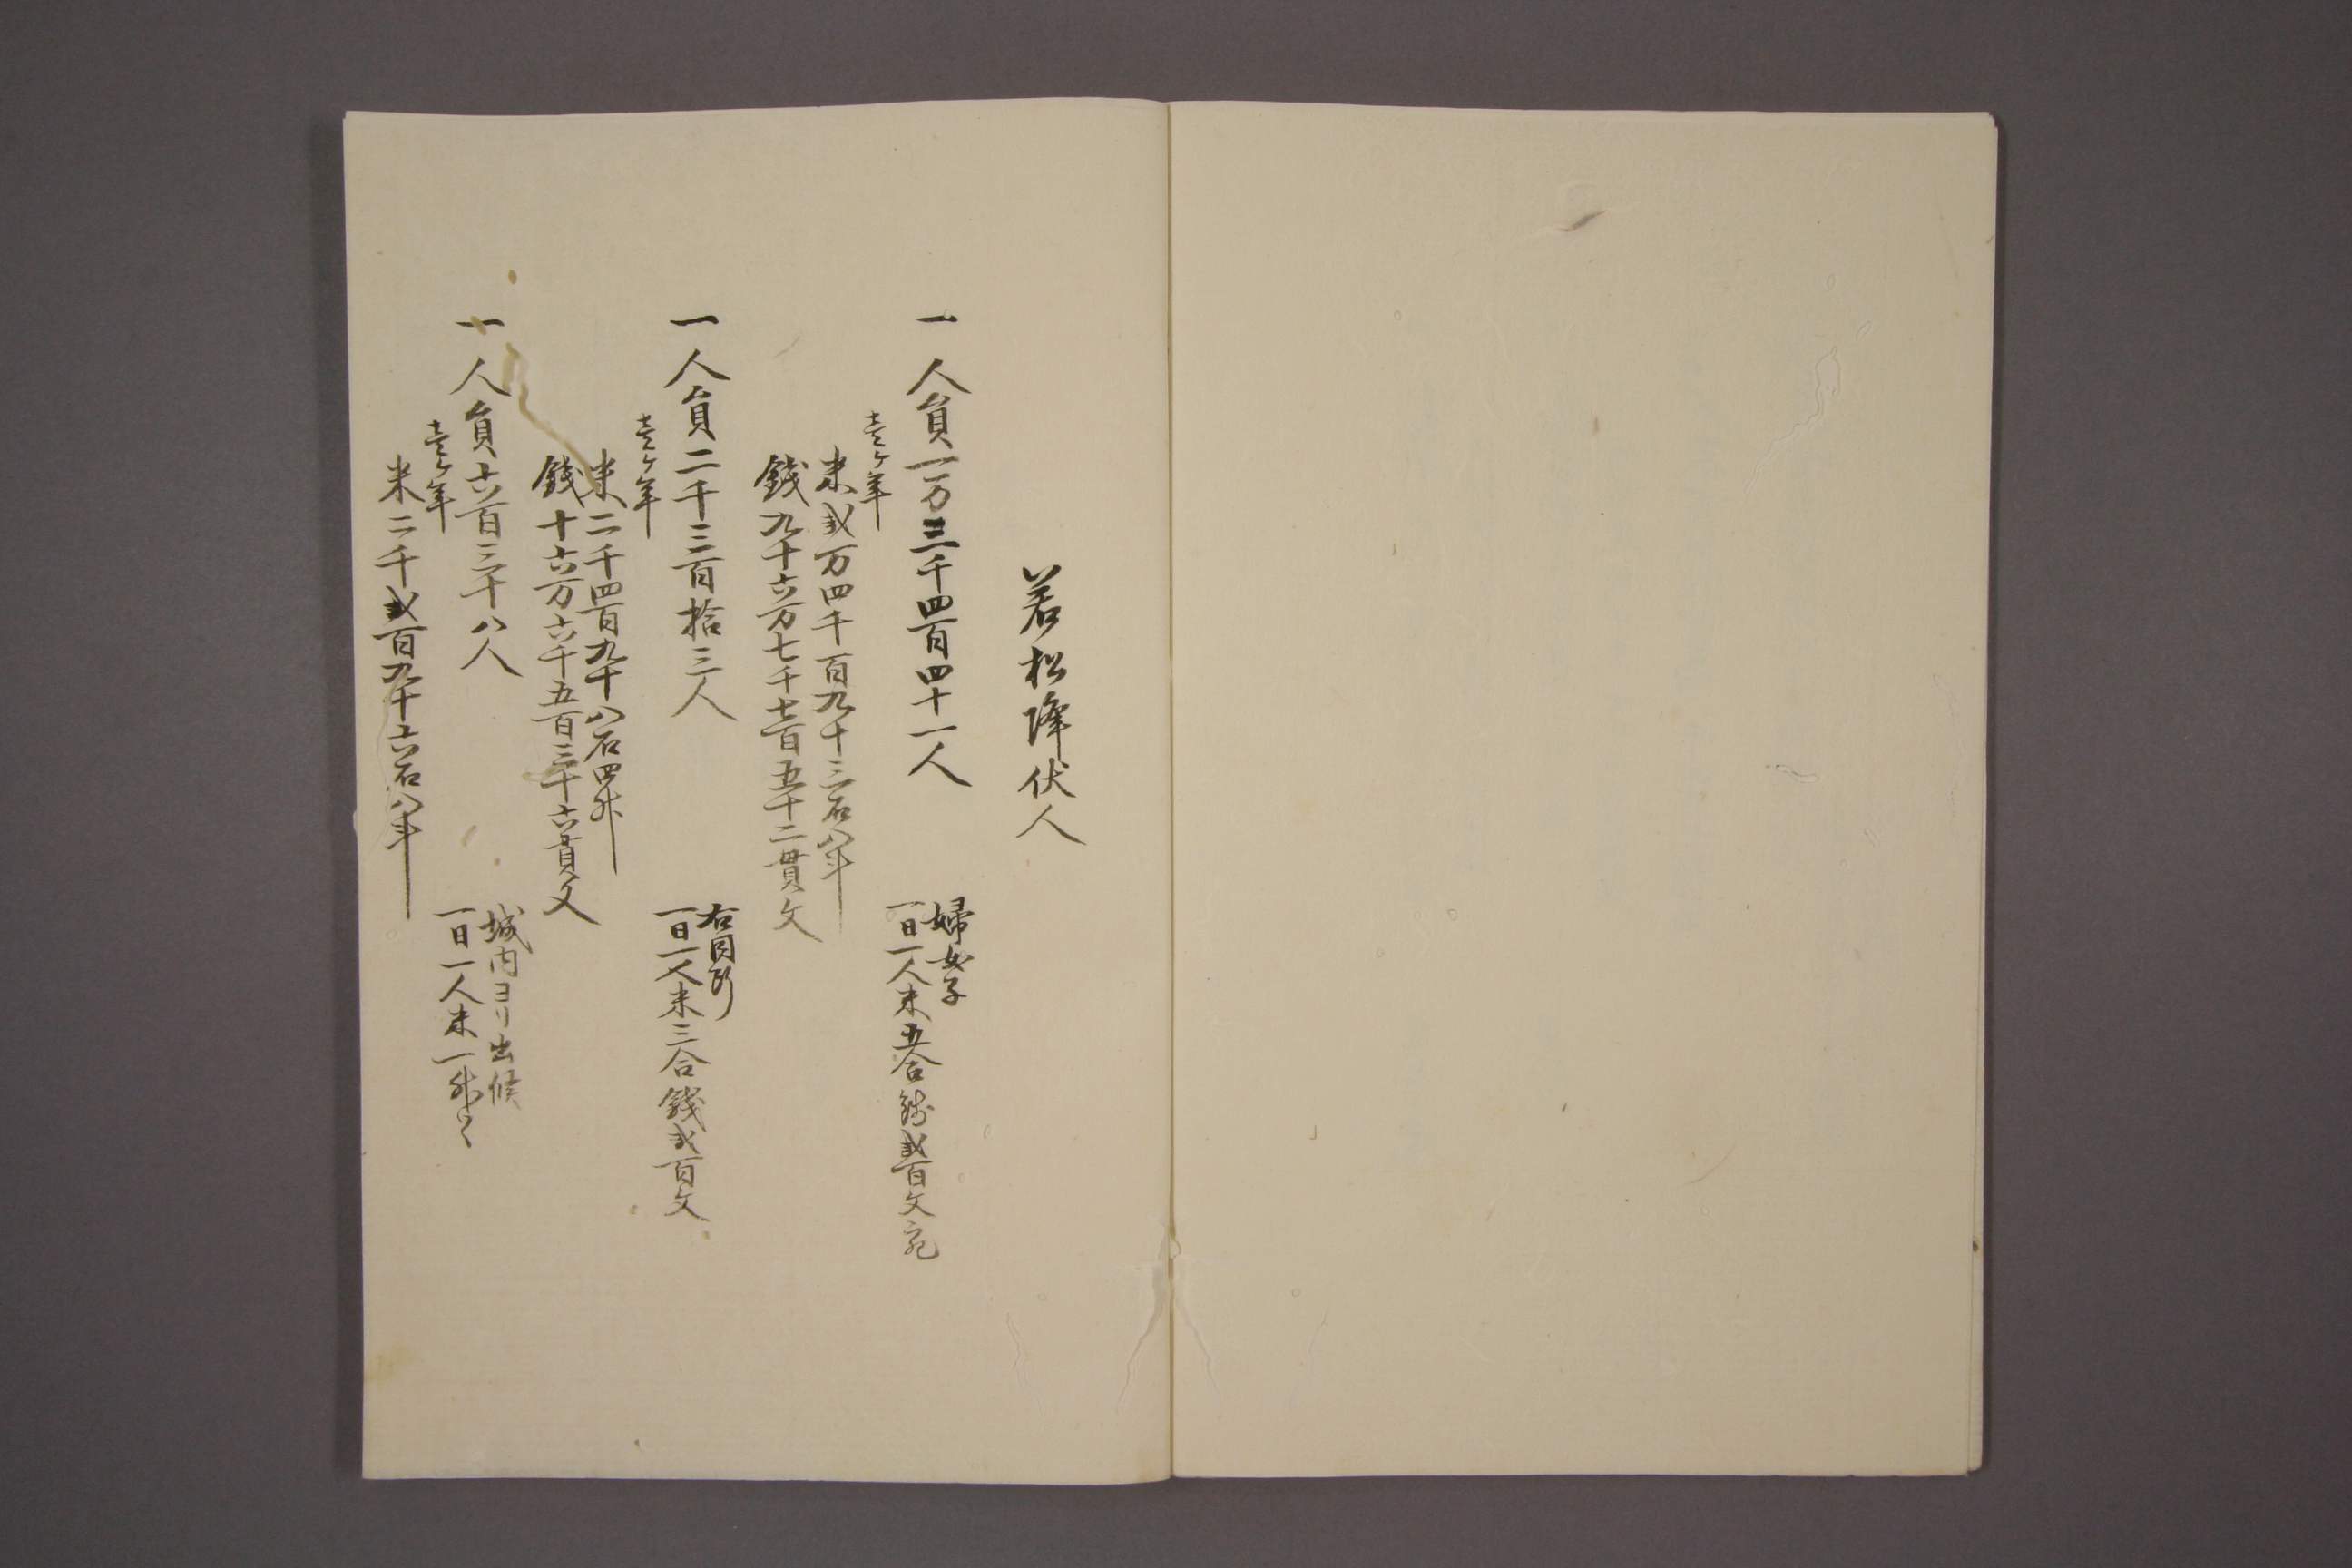 若松降伏人
一 人員一万三千四百四十一人
婦女子
一日一人米五合銭弐百文宛
壱ヶ年
米弐万四千百九十三石八斗
銭九十六万七千七百五十二貫文
一 人員二千三百拾三人
右同断
一日一人米三合銭弐百文
壱ヶ年
米二千四百九十八石四升
銭十六万六千五百三十六貫文
一 人員六百三十八人
城内ヨリ出候
一日一人米一升ツヽ
壱ヶ年
米二千弐百九十六石八斗